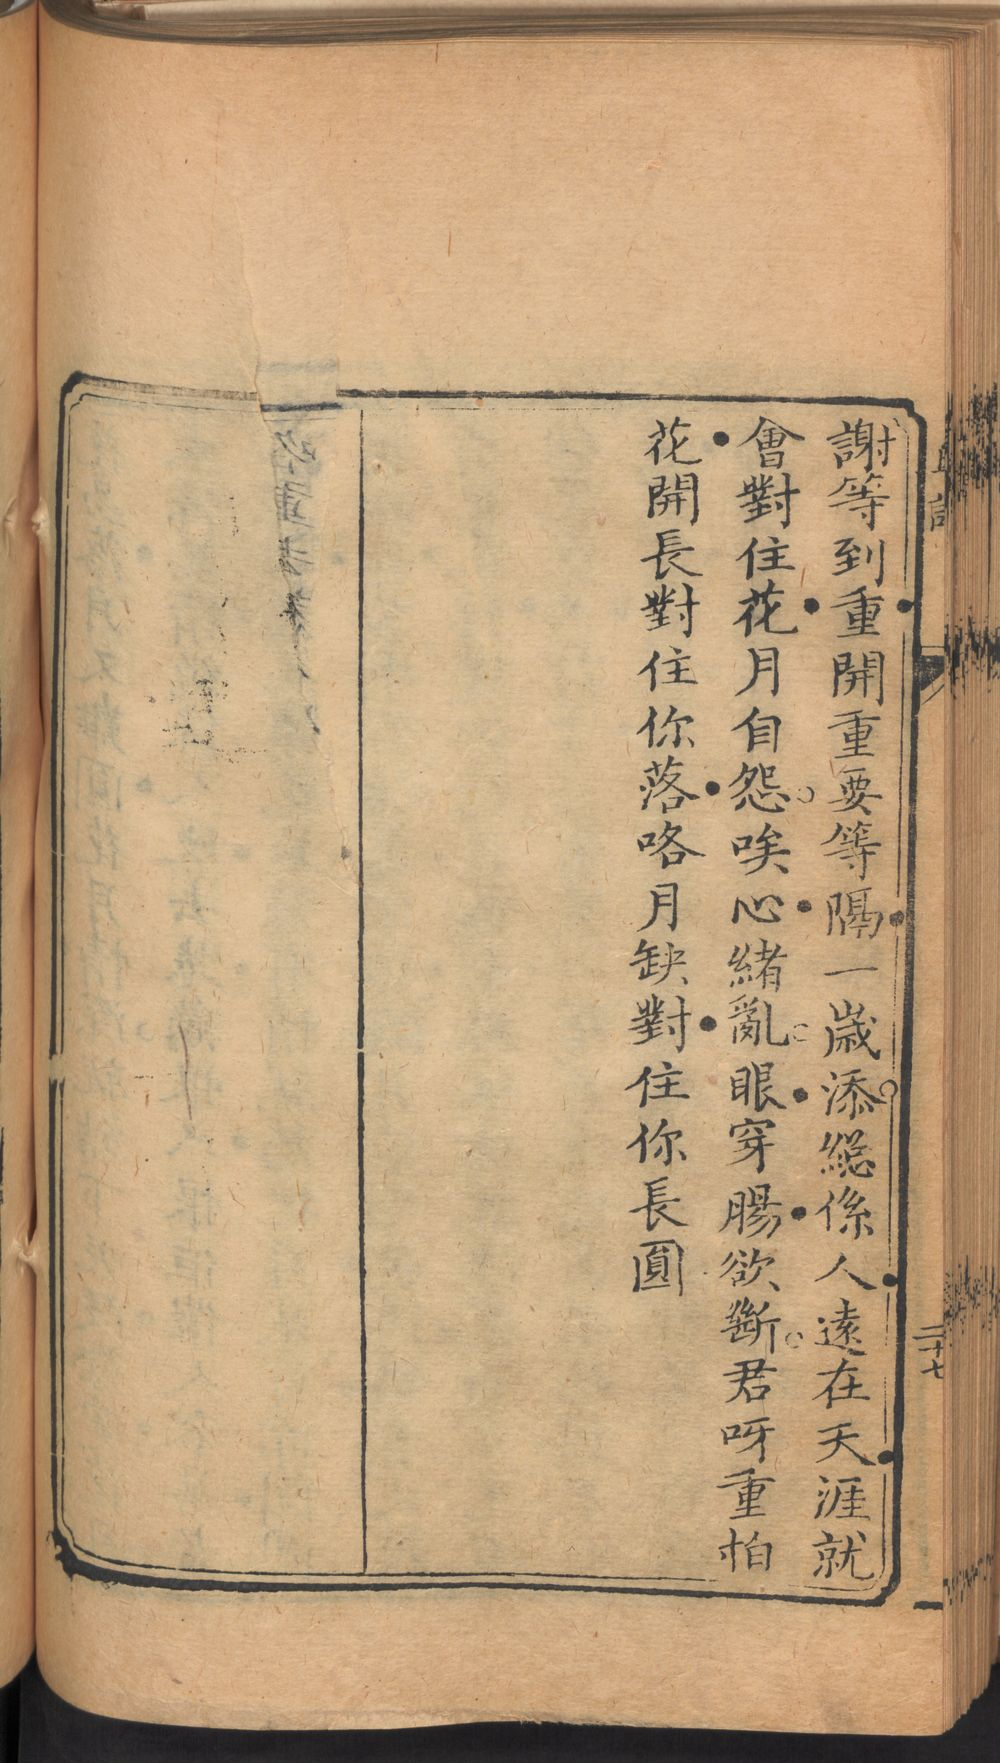 謝等到重開重要等隔一歲添緫係人遠在天涯就
會對住花月自怨唉心緒亂眼穿腸欲斷君呀重怕
花開長對住你落咯月缺對住你長圓
二十七